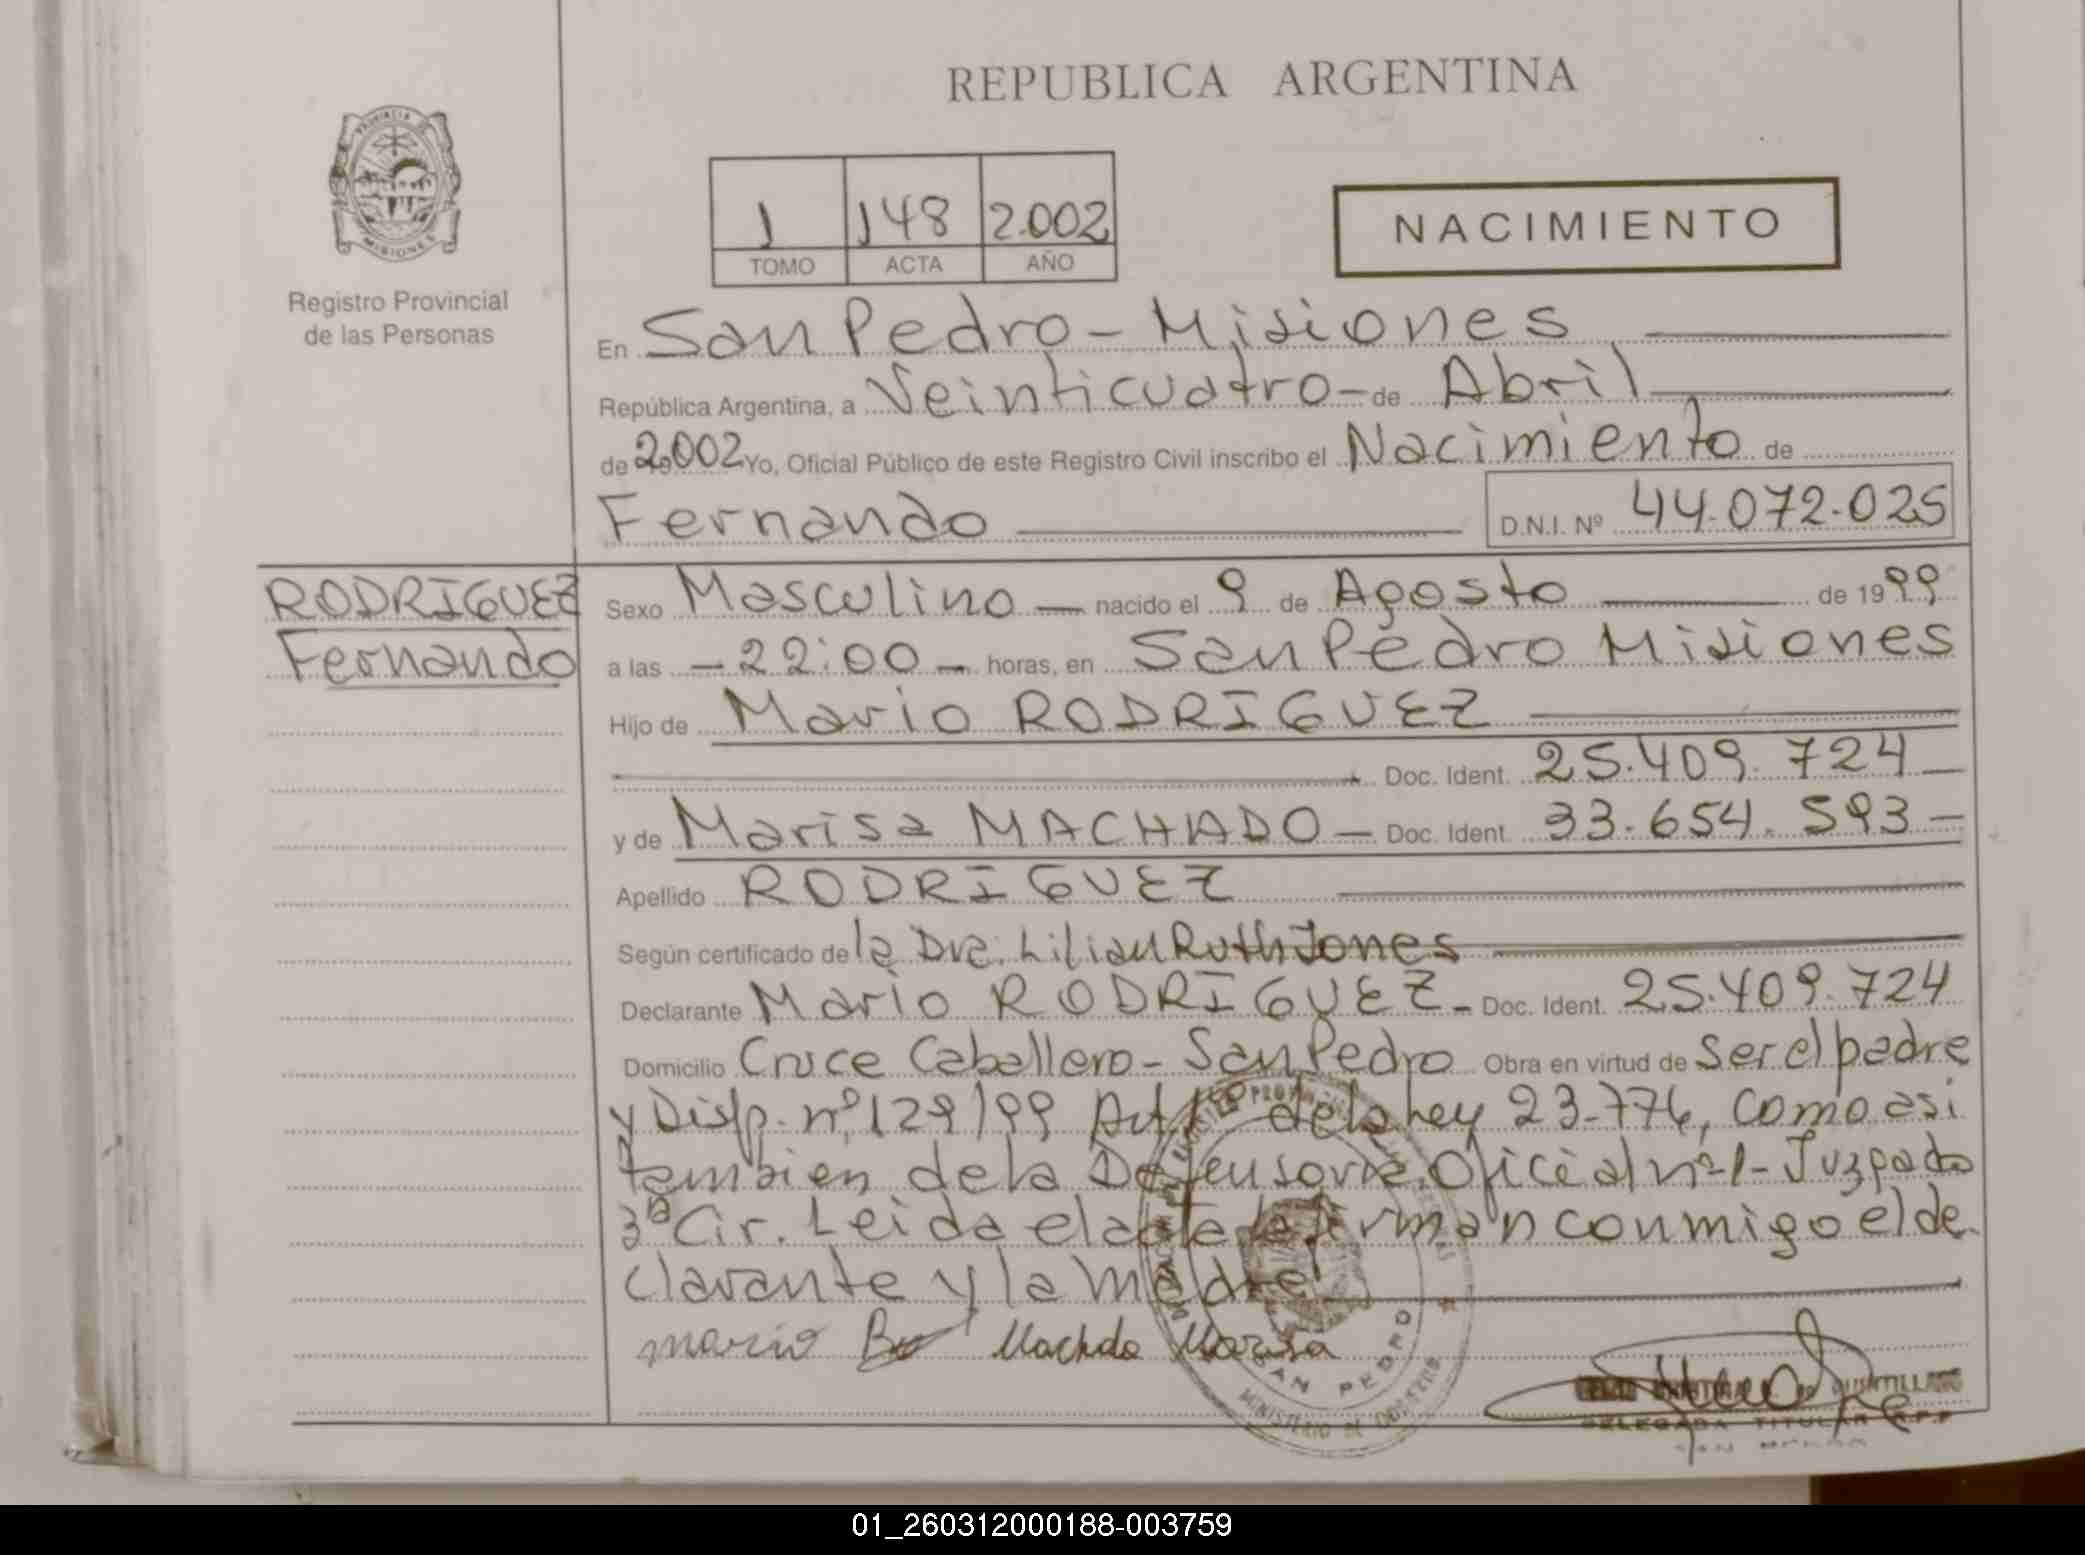 REPUBLICA ARGENTINA
PROVINCIA DE
MISIONES
Registro Provincial
de las Personas
1 148 2.002
TOMO ACTA AÑO
NACIMIENTO
En San Pedro - Misiones
República Argentina, a Veinticuatro - de Abril
de 2.002 Yo, Oficial Público de este Registro Civil inscribo el Nacimiento de
Fernando D.N.I. Nº 44.072.025
RODRIGUEZ
Fernando
Sexo Masculino - nacido el 9 de Agosto de 1999
a las - 22:00 - horas, en San Pedro Misiones
Hijo de Mario RODRIGUEZ
Doc. Ident. 25.409.724 -
y de Marisa MACHADO - Doc. Ident. 33.654.593 -
Apellido RODRIGUEZ
Según certificado de la Dra. Lilian Ruth Jones
Declarante Mario RODRIGUEZ - Doc. Ident. 25.409.724
Domicilio Cruce Caballero - San Pedro Obra en virtud de ser el padre
y Disp. nº 129/99 Art de la Ley 23.776, como asi
tambien de la Defensoria Oficial nº 1 - Juzgado
3ª Cir. Leida el acta la firman conmigo el de
clarante y la madre
mario Machado Marisa
SAN PEDRO
MINISTERIO DE GOBIERNO
DELEGADA TITULAR R.P.P
SAN PEDRO
01_260312000188-003759